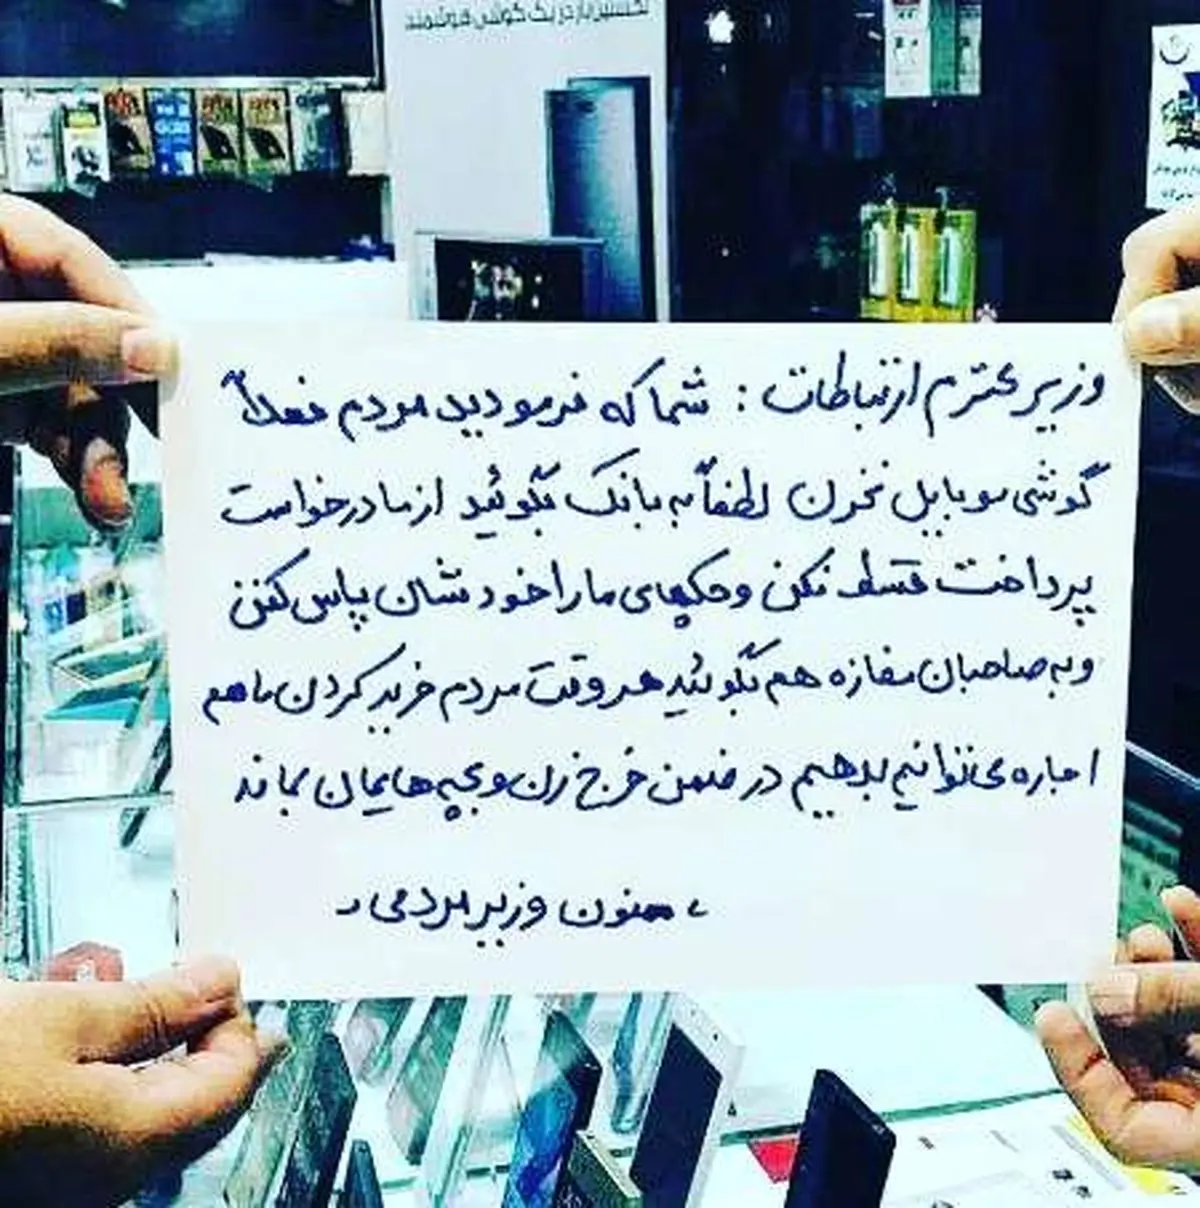 نخستین بار در یک گوشی هوشمند
وزیر محترم ارتباطات : شما که فرمودید مردم فعلاً
گوشی موبایل نخرن لطفاً به بانک بگوئید از ما درخواست
پرداخت قسط نکن و چکهای ما را خودشان پاس کنن
و به صاحبان مغازه هم بگوئید هر وقت مردم خرید کردن ما هم
اجاره می توانیم بدهیم در ضمن خرج زن و بچه هایمان بماند
، ممنون وزیر مردمی ،